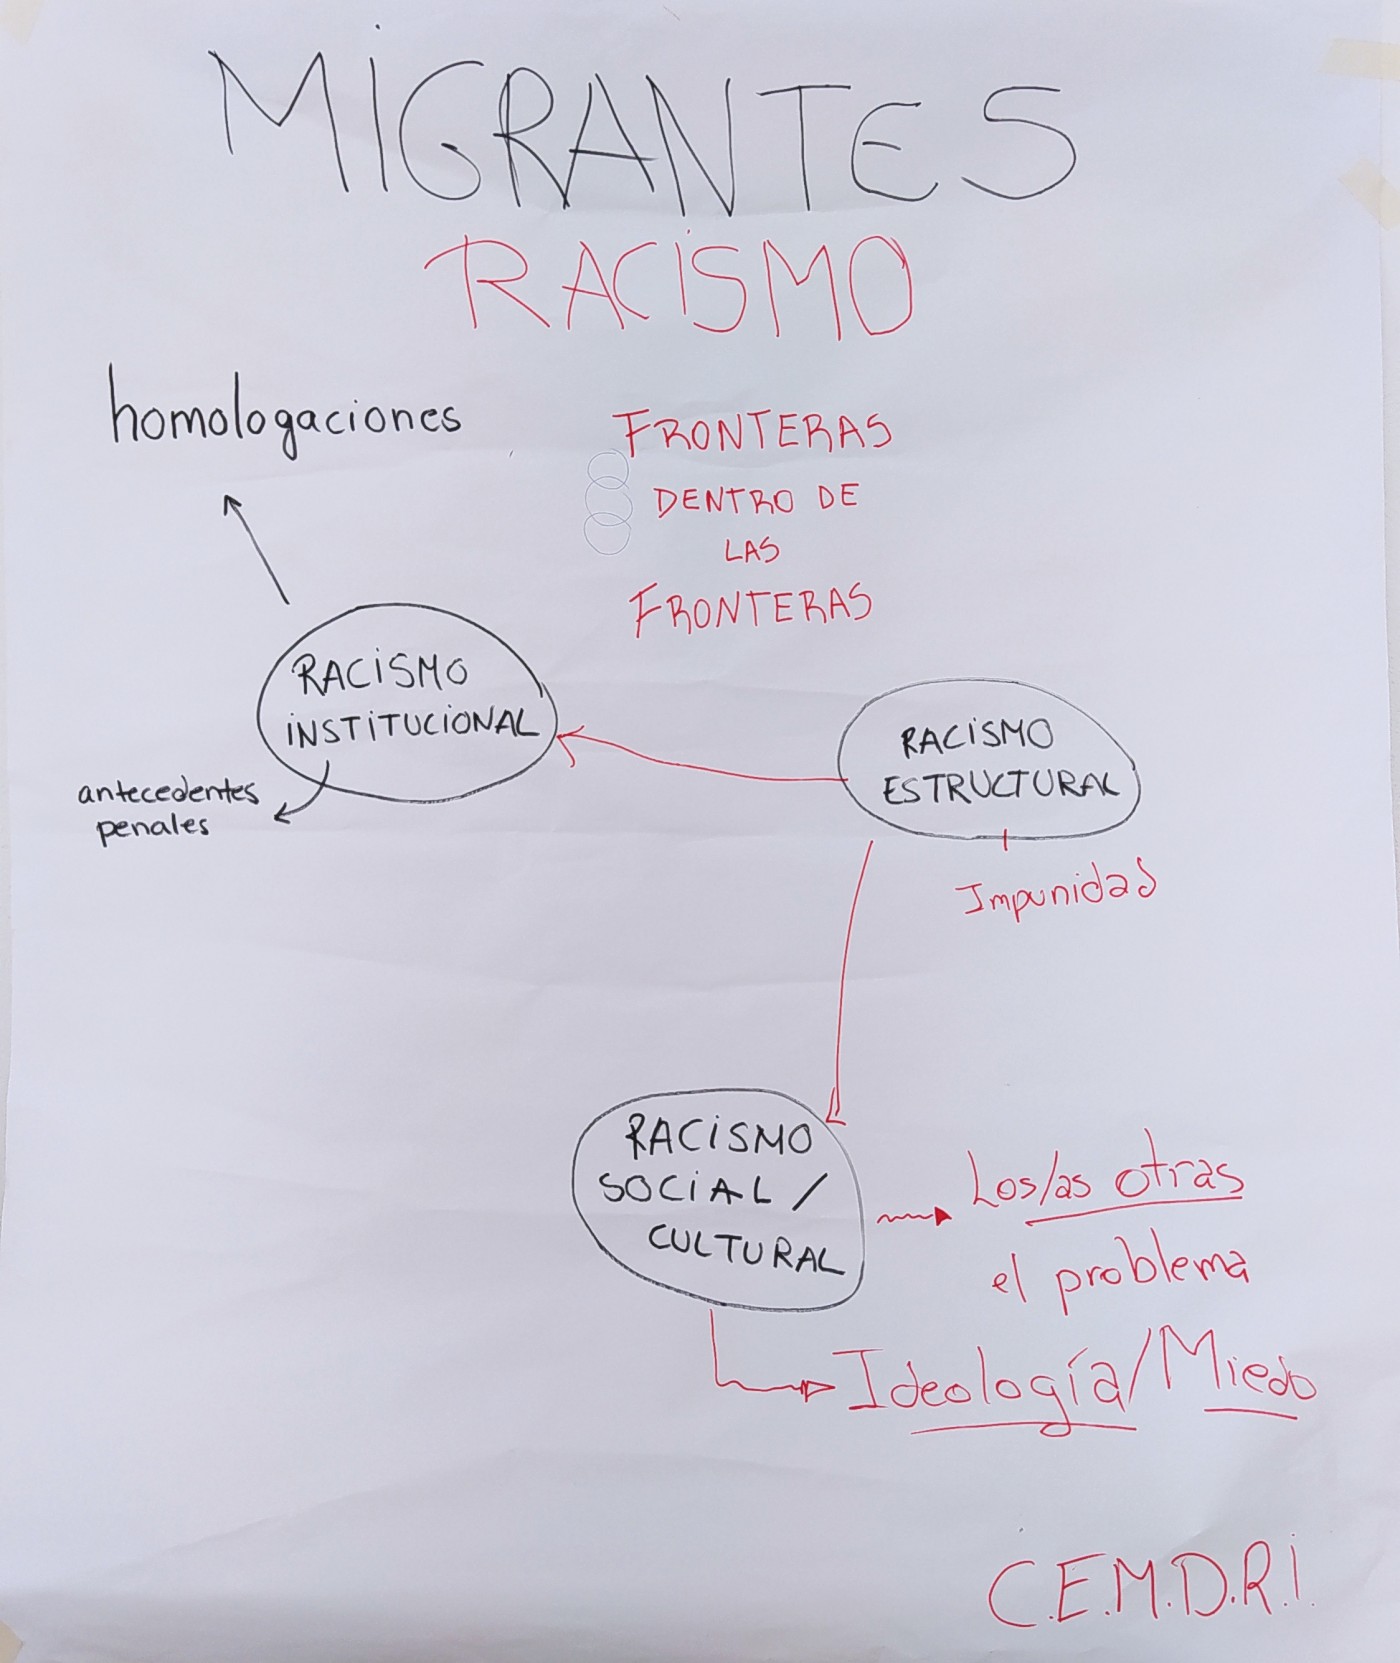 MIGRANTES
RACISMO
homologaciones
FRONTERAS
DENTRO DE
LAS
FRONTERAS
RACISMO
INSTITUCIONAL
antecedentes
penales
RACISMO
ESTRUCTURAL
Impunidad
RACISMO
SOCIAL /
CULTURAL
Los/as otras
el problema
Ideología/Miedo
C.E.M.D.R.I.